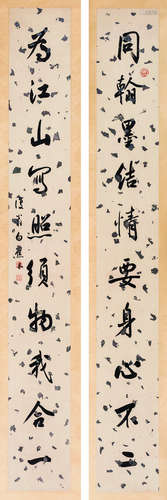 同翰墨结情要身心不二
为江山写照须物我合一